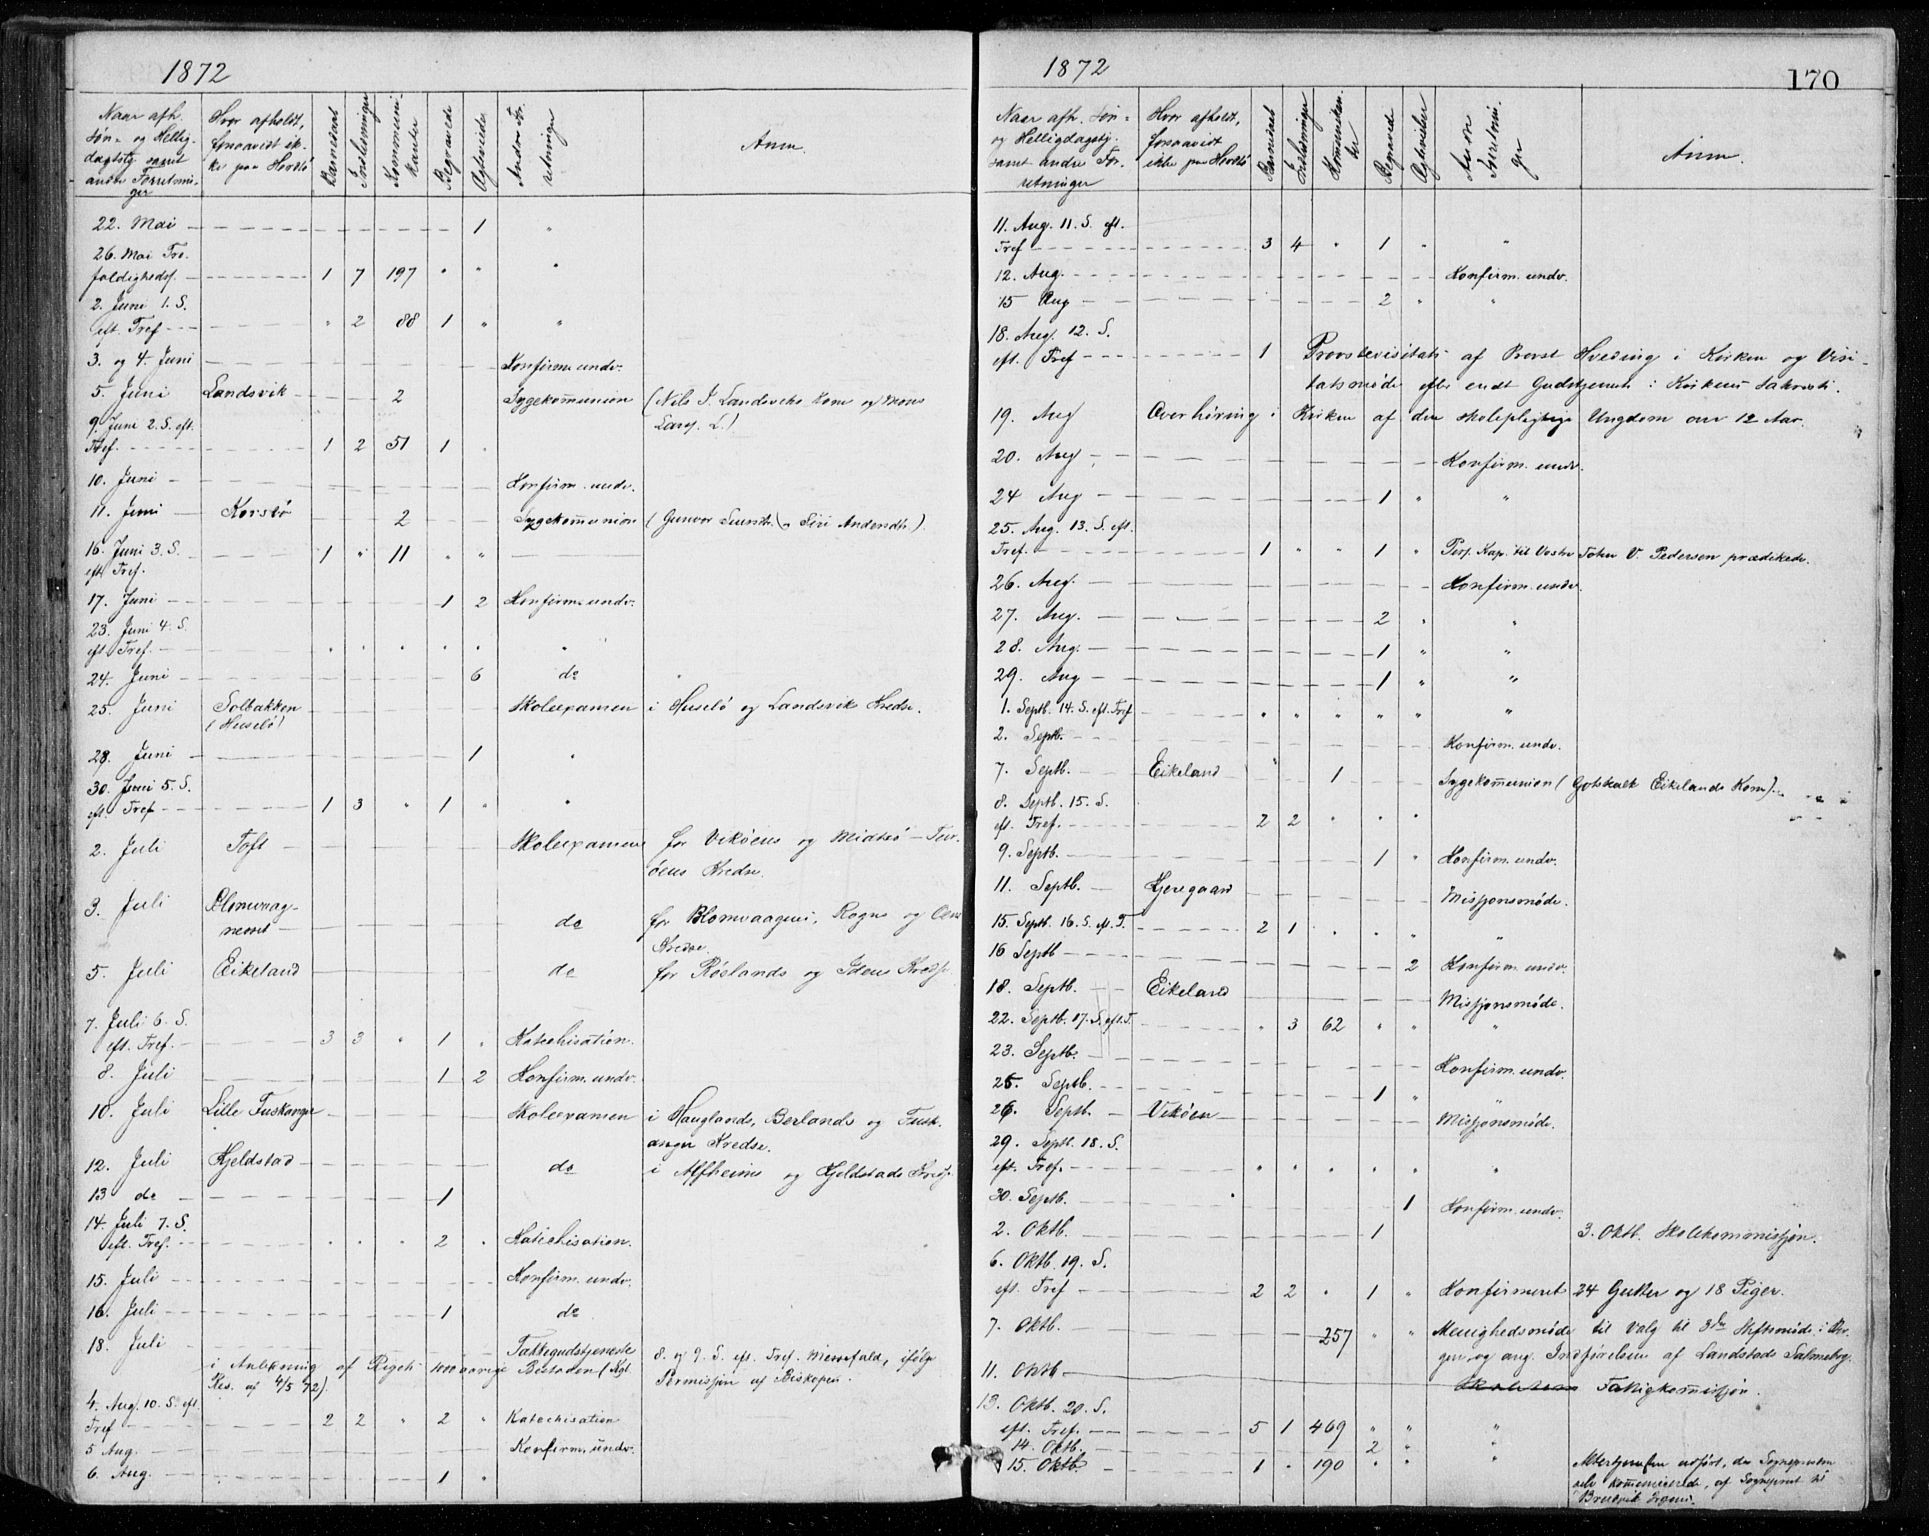 1872
Naar afh.
Søn- og Hellig-
dagstj. samt
andre Forretnin-
ger
Hvor afholdt,
forsaavidt ik-
ke paa Herdlø
Barnedaab
Indledninger
Kommuni-
kanter
Begravede
Ægteviede
Andre For-
retninger
Anm.
22. Mai 1 "
26. Mai Tre-
foldighedsf. 1 7 197 " " "
2. Juni 1. S.
eft. Tref " 2 88 1 " "
3. og 4. Juni Konfirm. undv.
5. Juni Landsvik 2 Sygekommunion (Nils J. Landsviks Kone og Mons
Larss. L.)
9. Juni 2. S. eft.
Tref. 1 2 51 1 "
10. Juni Konfirm. undv.
11. Juni Korslø 2 Sygekommunion (Gunvor Sunsdtr. og Siri Andersdtr.)
16. Juni 3. S.
eft. Tref. 1 " 11 " "
17. Juni 1 2 Konfirm. undv.
23. Juni 4. S.
eft. Tref. " " " " " "
24. Juni 6 do
25. Juni Solbakken
(Huselø) Skoleexamen i Huselø og Landsviks Kredse.
28. Juni 1 "
30. Juni 5. S.
eft. Tref 1 3 " 1 " "
2. Juli Toft Skoleexamen for Vikøens og Midtsø-
øens Kredse.
3. Juli Blomvaag-
nesset do for Blomvaagens, Rogns og Oens
Kredse.
5. Juli Eikeland do for Røslands og Idens Kredse
7. Juli 6. S.
eft. Tref. 3 3 " 1 " Katechisation.
8. Juli 1 2 Konfirm. undv.
10. Juli Lille Fuskanger Skoleexamen i Hauglands, Berlands og Fusk-
anger Kredse.
12. Juli Kjeldstad do i Alfheims og Kjeldstads Kredse
13 do 1
14. Juli 7. S.
eft. Tref. " " " 2 " Katechisation.
15. Juli Konfirm. undv.
16. Juli 1 do
18. Juli Takkegudstjeneste 8. og 9. S. eft. Tref. Messefald, ifølge
i Anledning af Rigets 1000aarige Bestaaen (Kgl. Permissjon af Biskopen.
Res. af 4/5 72).
4. Aug. 10. S. eft.
Tref 2 2 " 2 " Katechisation
5 Aug. Konfirm. undv.
6. Aug. 1 "
1872
170
Naar afh. Søn-
og Helligdagstj.
samt andre For-
retninger
Hvor afholdt,
forsaavidt
ikke paa Herdlø
Barnedaab
Indledninger
Kommunikan-
ter
Begraved
Ægtevieder
Andre
Forretnin-
ger
Anm.
11. Aug. 11. S. eft.
Tref 3 4 " 1 " "
12. Aug. Konfirm. undv.
15 Aug 2 " "
18. Aug. 12. S.
eft. Tref 1 Provstevisitats af Provst Hveding i Kirken og Visi-
tatsmøde efter endt Gudstjeneste i Kirkens Sakristi.
19. Aug Overhøring i Kirken af den skolepligtige Ungdom over 12 Aar.
20. Aug Konfirm. undv.
24 Aug 1 " "
25. Aug. 13. S. eft.
Tref. 1 " " 1 " Pers. Kap. til Vestre Toten V. Pedersen prædikede.
26. Aug. Konfirm. undv.
27. Aug. 2 " "
28. Aug. 1 " "
29. Aug 1 " "
1. Septb. 14. S. eft. Tref " " " " " "
2. Septb. Konfirm. undv.
7. Septb. Eikeland " 1 Sygekommunion (Gotskalk Eikelands Kone)
8. Septb. 15. S.
eft. Tref. 2 2 " " "
9. Septb. 1 " Konfirm. undv.
11. Septb. Kjeregaard Missjonsmøde.
15. Septb. 16. S. eft. T. 2 1 " " " "
16 Septb 2 Konfirm. undv.
18. Septb. Eikeland Missjonsmøde.
22. Septb. 17. S. eft. T. " 3 62 " " "
23. Septb. Konfirm. undv.
25. Septb. 1 " "
26. Septb. Vikøen Missjonsmøde.
29. Septb. 18. S.
eft. Tref. " " " " " "
30. Septb. 1 Konfirm. undv.
2. Oktb. 1 3. Oktb. Skolekommissjon.
6. Oktb. 19. S.
eft. Tref 2 2 " 1 " Konfirmeret 24 Gutter og 18 Piger.
7. Oktb. 257 " " Menighedsmøde til Valg til 3die Stiftsmøde i Ber-
gen og ang. Indførelsen af Landstads Salmebog.
11. Oktb Fattigkommissjon.
13. Oktb. 20. S.
eft. Tref. 5 1 469 " " "
14. Oktb. 2 " "
15. Oktb. 1 " 190 " " " Altertjenesten udført, da Sognepresten
selv kommunicerede, af Sogneprest til